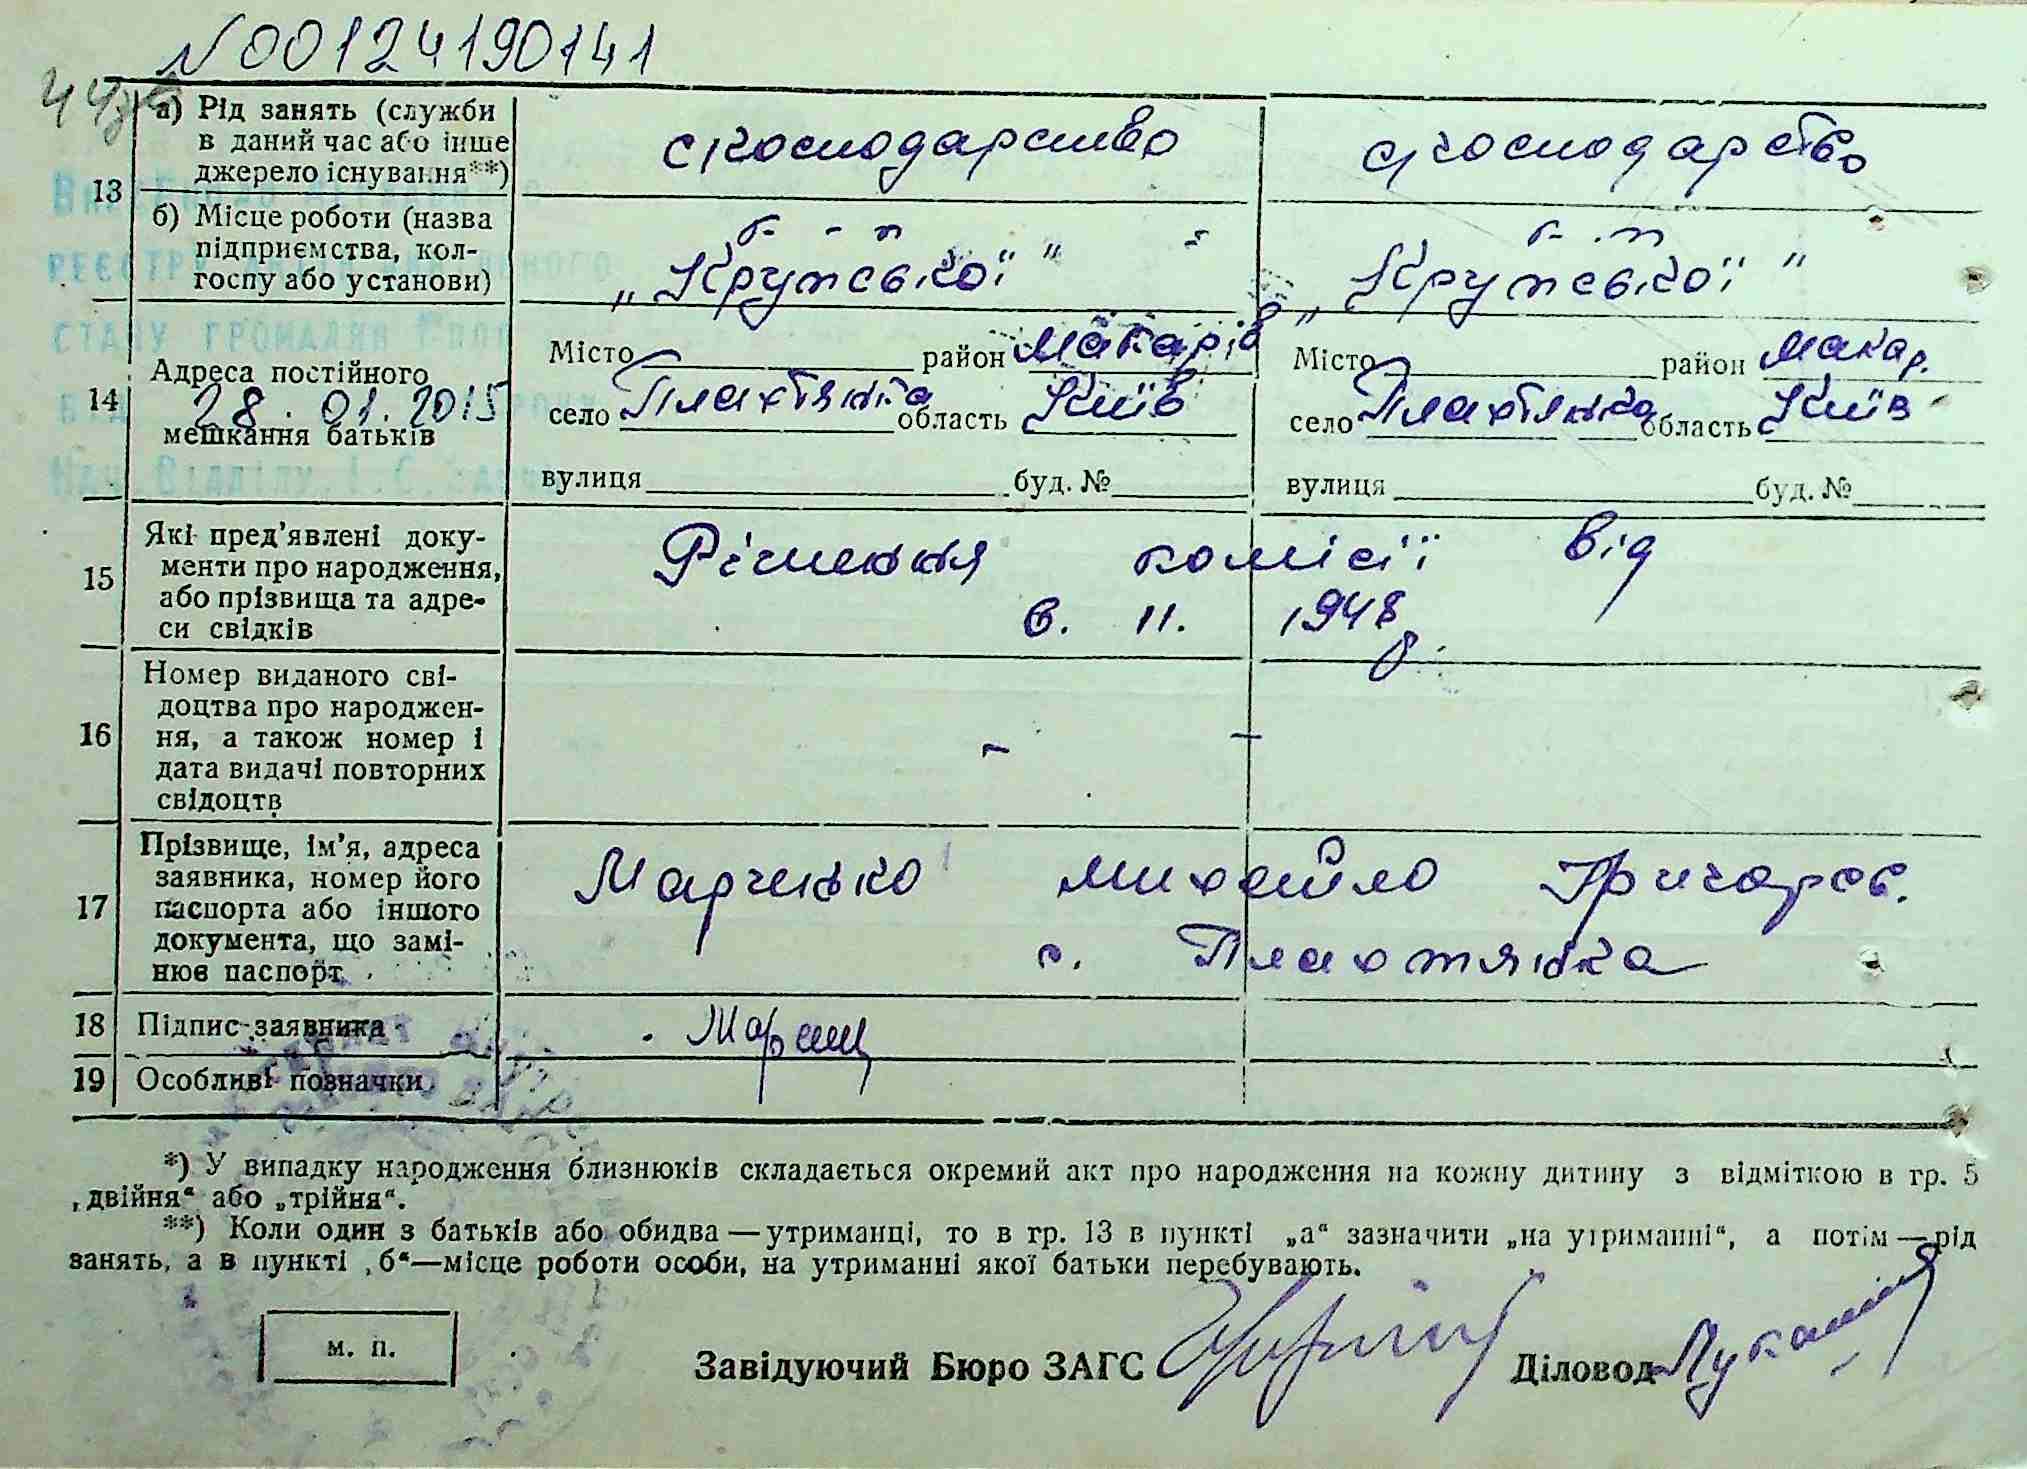 N00124190141
13 а) Рід занять (служби
в даний час або інше
джерело існування**)
с господарство
с господарство
б) Місце роботи (назва
підприємства, кол-
госпу або установи)
„Крупської"
„Крупської"
14 Адреса постійного
28.01.2015
мешкання батьків
Місто район Макарів
село Плахтянка область Київ
вулиця буд. №
Місто район Макар.
село Плахтянка область Київ
вулиця буд. №
15 Які пред'явлені доку-
менти про народження,
або прізвища та адре-
си свідків
Рішення комісії від
6. 11. 1948 р.
16 Номер виданого сві-
доцтва про народжен-
ня, а також номер і
дата видачі повторних
свідоцтв
— —
17 Прізвище, ім'я, адреса
заявника, номер його
паспорта або іншого
документа, що замі-
нює паспорт
Марченко Михайло Григоров.
с. Плахтянка
18 Підпис заявника
19 Особливі позначки
*) У випадку народження близнюків складається окремий акт про народження на кожну дитину з відміткою в гр. 5
„двійня“ або „трійня“.
**) Коли один з батьків або обидва — утриманці, то в гр. 13 в пункті „а“ зазначити „на утриманні“, а потім — рід
занять, а в пункті „б“—місце роботи особи, на утриманні якої батьки перебувають.
м. п.
Завідуючий Бюро ЗАГС
Діловод